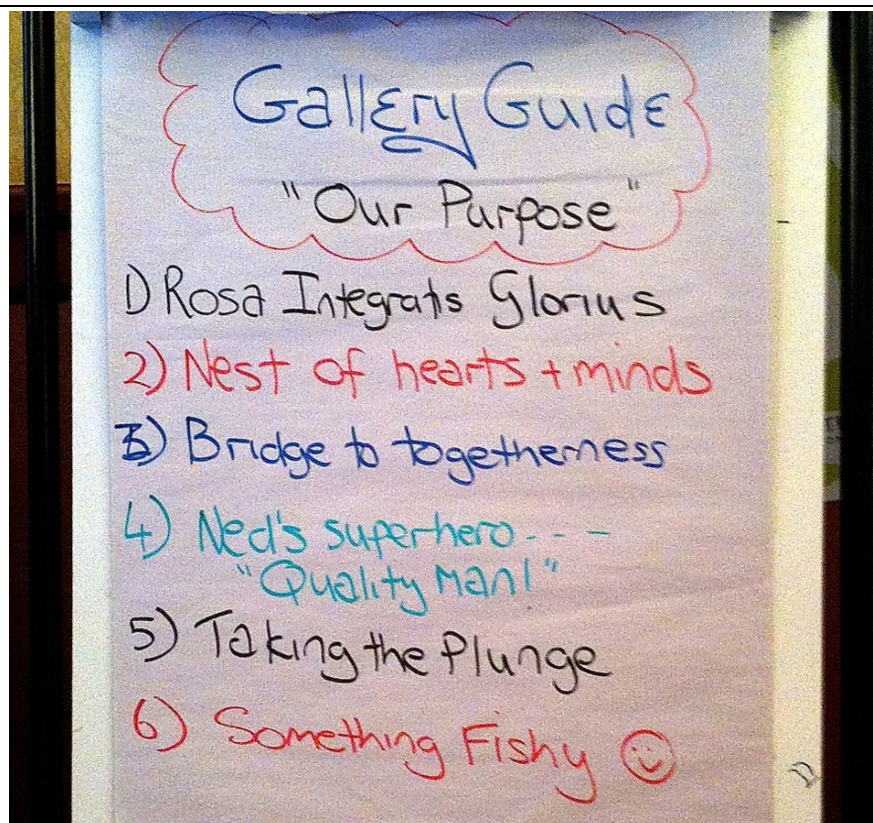 Gallery Guide
"Our Purpose"
1) Rosa Integrats Glorius
2) Nest of hearts + minds
3) Bridge to togetherness
4) Ned's superhero - - -
"Quality Man!"
5) Taking the Plunge
6) Something Fishy